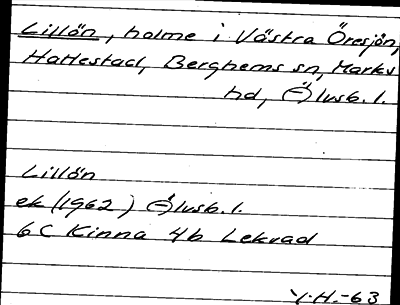 Lillön, holme i Västra Öresjön,
Hattestad, Berghems sn, Marks
hd, Älvsb. l.
Lillön
ek (1962) Älvsb. l.
6 C Kinna 4b Lekvad
Y.H.-63